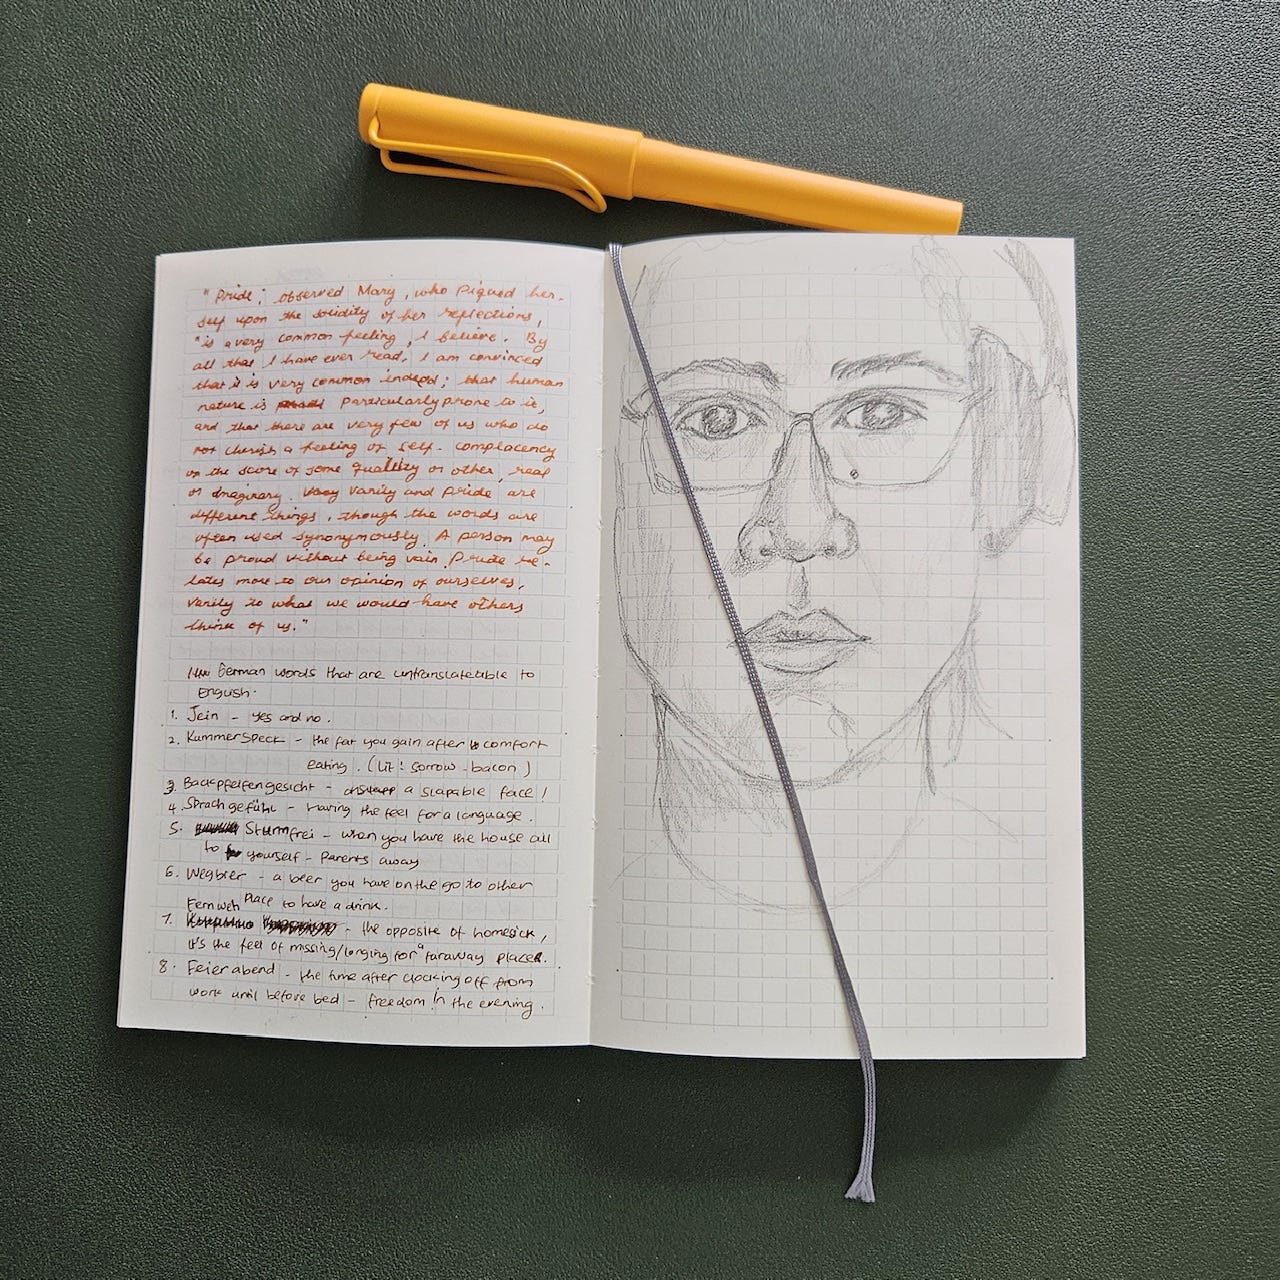 "Pride," observed Mary, who piqued her-
self upon the solidity of her reflections,
"is a very common feeling, I believe. By
all that I have ever read, I am convinced
that it is very common indeed; that human
nature is particularly prone to it,
and that there are very few of us who do
not cherish a feeling of self-complacency
on the score of some quality or other, real
or imaginary. Vanity and pride are
different things, though the words are
often used synonymously. A person may
be proud without being vain. Pride re-
lates more to our opinion of ourselves,
vanity to what we would have others
think of us."
German words that are untranslateable to
English.
1. Jein - yes and no.
2. Kummerspeck - the fat you gain after comfort
eating. (Lit: sorrow-bacon)
3. Backpfeifengesicht - a slapable face!
4. Sprachgefühl - having the feel for a language.
5. Sturmfrei - when you have the house all
to yourself - Parents away
6. Wegbier - a beer you have on the go to other
place to have a drink.
7. Fernweh - the opposite of homesick,
it's the feel of missing/longing for a faraway place.
8. Feierabend - the time after clocking off from
work until before bed - freedom in the evening.